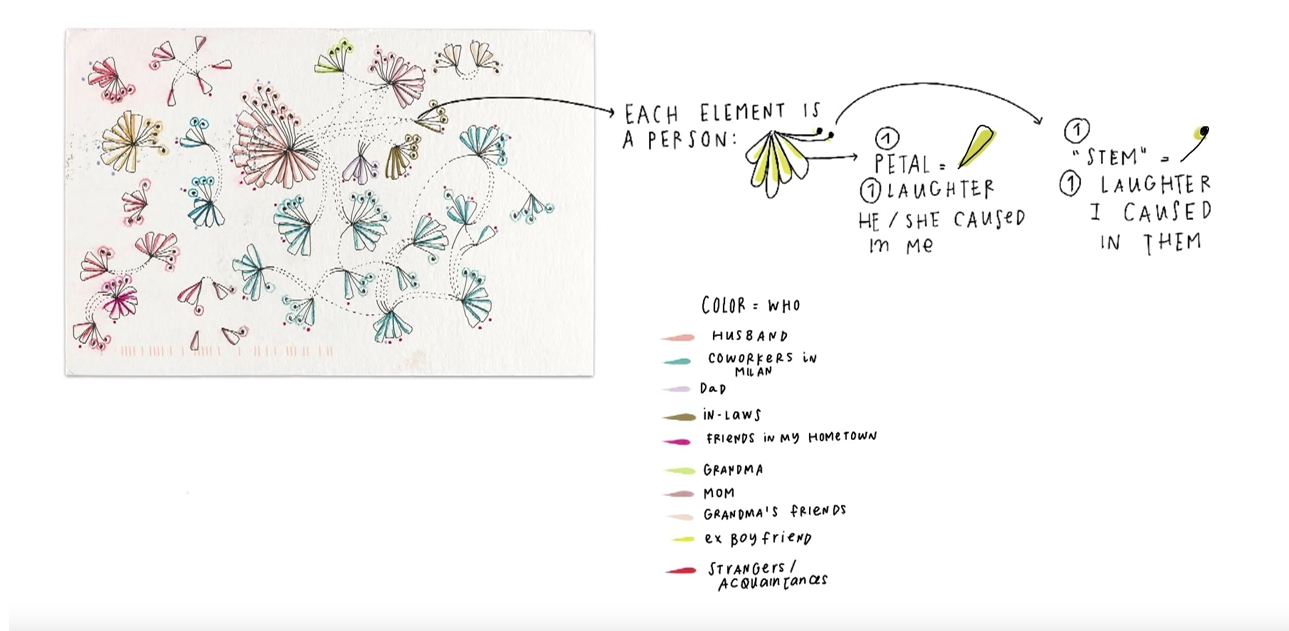 EACH ELEMENT IS
A PERSON:
1
PETAL =
1 LAUGHTER
HE / SHE CAUSED
IN ME
1
"STEM" =
1 LAUGHTER
I CAUSED
IN THEM
COLOR = WHO
HUSBAND
COWORKERS IN
MILAN
DAD
IN-LAWS
FRIENDS IN MY HOMETOWN
GRANDMA
MOM
GRANDMA'S FRIENDS
EX BOYFRIEND
STRANGERS /
ACQUAINTANCES